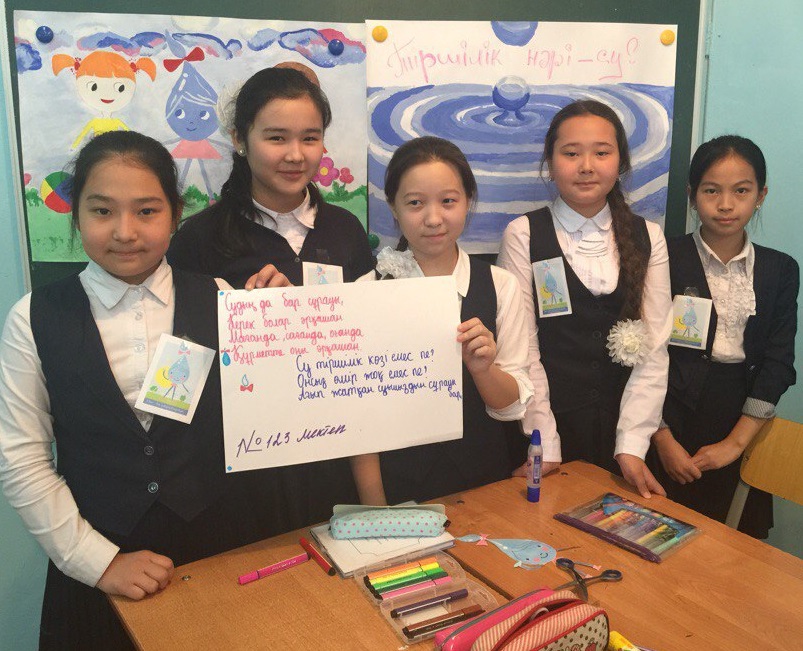 Тіршілік нәрі–су?
Судың да бар сұрауы,
Керек болар әрқашан
Маған да, саған да, оған да
Құрметте оны әрқашан.
Су тіршілік көзі емес пе?
Онсыз өмір жоқ емес пе?
Ағып жатқан суыңыздың сұрауы
бар.
№ 123 мектеп